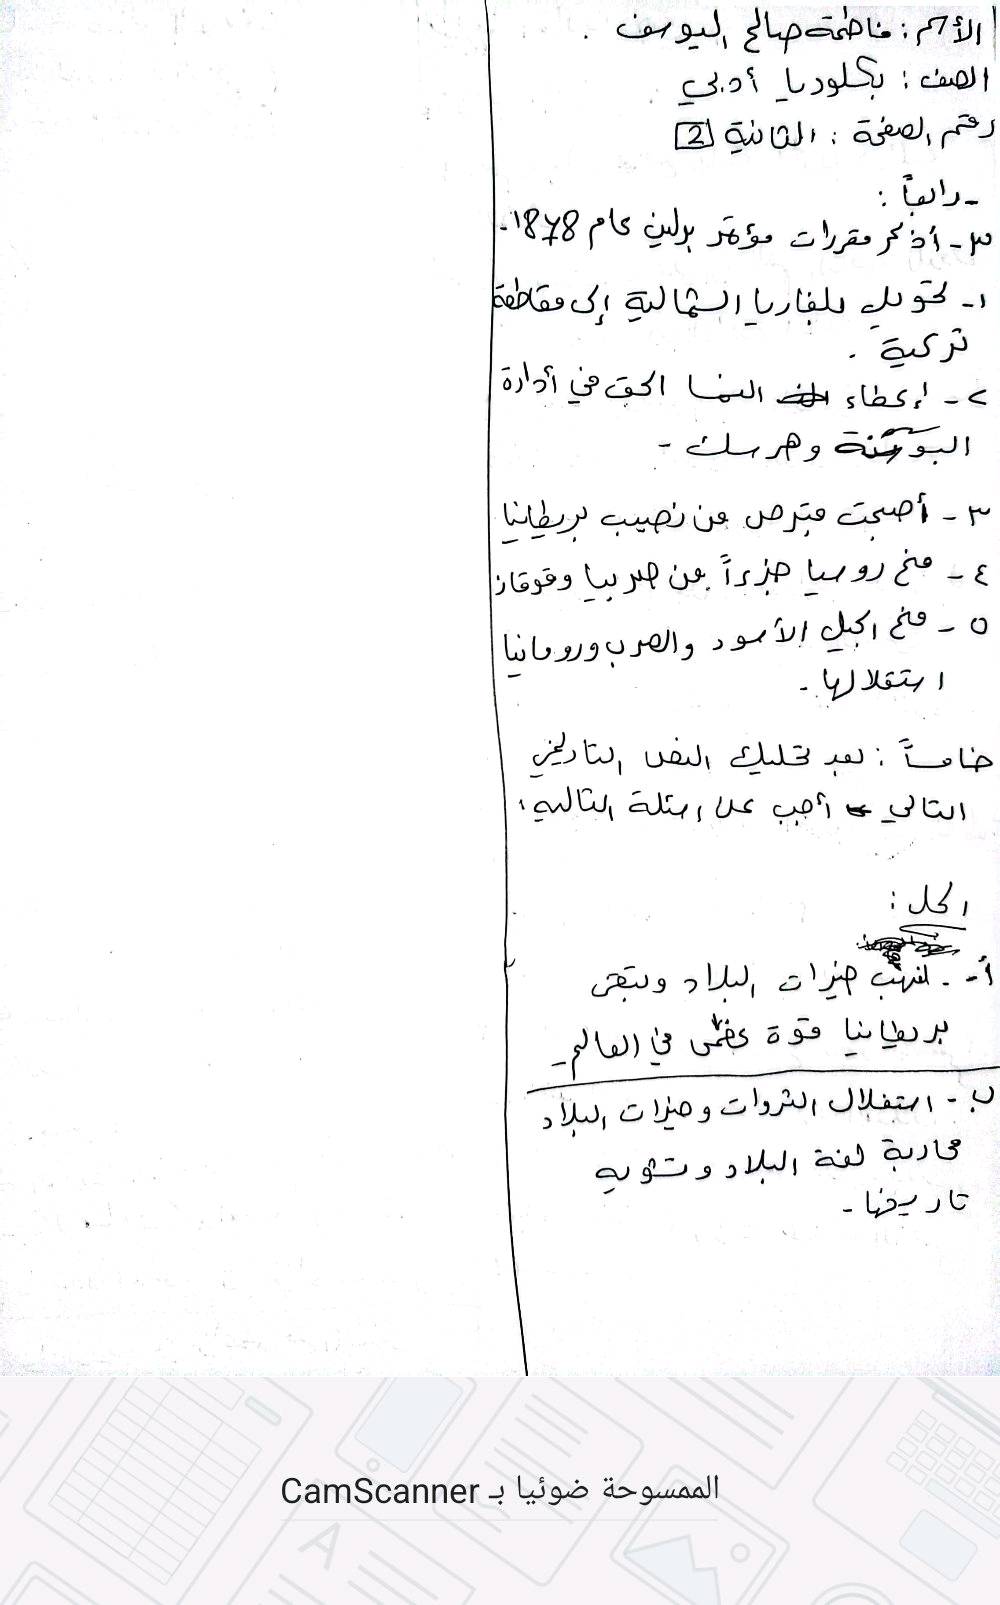 الأسم : فاطمة صالح اليوسف .
الصف : بكلوريا أدبي
رقم الصفحة : الثانية [2]
- رابعاً :
٣- أذكر مقررات مؤتمر برلين عام 1878-
١- تحويل بلغاريا الشمالية إلى مقاطعة
تركية .
٢- إعطاء النمسا الحق في أدارة
البوسنة وهرسك -
٣- أصبحت قبرص من نصيب بريطانيا
٤- منح روسيا جزءاً من صربيا وقوقاز
٥- منح الجبل الأسود والصرب ورومانيا
استقلالها -
خامساً : بعد تحليلك النص التاريخي
التالي أجب على اسئلة التالية :
الحل :
أ- لنهب خيرات البلاد وتبقى
بريطانيا قوة عظمى في العالم -
ب- استغلال الثروات وخيرات البلاد
محاربة لغة البلاد وتشويه
تاريخها -
الممسوحة ضوئيا بـ CamScanner